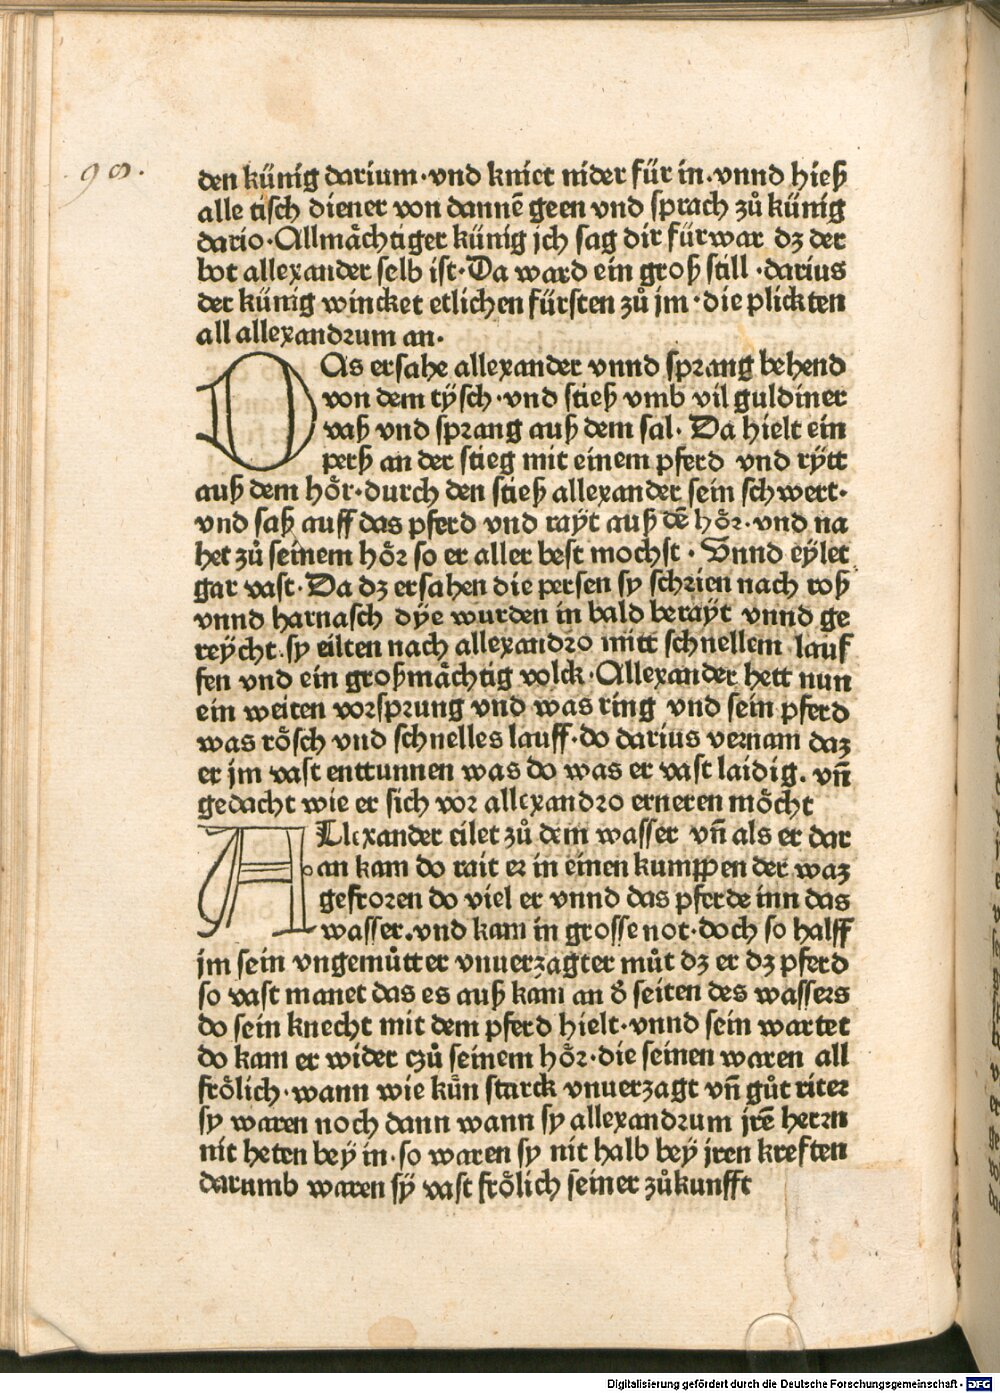 98.
den künig darium·vnd kniet nider für in.vnnd hieß
alle tisch diener von dannē geen vnd sprach zů künig
dario·Allmåchtiger künig jch sag dir fürwar dz der
bot allexander selb ist·Da ward ein groß still·darius
der künig wincket etlichen fürsten zů jm·die plickten
all allexandrum an·
DAs ersahe allexander vnnd sprang behend
von dem tÿsch·vnd stieß vmb vil guldiner
vaß vnd sprang auß dem sal·Da hielt ein
perß an der stieg mit einem pferd vnd rÿtt
auß dem hôr·durch den stieß allexander sein schwert·
vnd saß auff das pferd vnd rayt auß dē hôr·vnd na
het zů seinem hôr so er aller best mochst·Vnnd eÿlet
gar vast·Da dz ersahen die persen sy schrien nach roß
vnnd harnasch dÿe wurden in bald berayt vnnd ge
reÿcht.sy eilten nach allexandro mitt schnellem lauf
fen vnd ein großmåchtig volck·Allexander hett nun
ein weiten vorsprung vnd was ring vnd sein pferd
was rôsch vnd schnelles lauff·do darius vernam daz
er jm vast enttunnen was do was er vast laidig. vn̄
gedacht wie er sich vor allexandro erneren môcht
ALlexander eilet zů dem wasser vn̄ als er dar
an kam do rait er in einen kumppen der waz
gefroren do viel er vnnd das pferde inn das
wasser.vnd kam in grosse not·doch so halff
jm sein vngemůtter vnuerzagter můt dz er dz pferd
so vast manet das es auß kam an d̕ seiten des wassers
do sein knecht mit dem pferd hielt·vnnd sein wartet
do kam er wider czů seinem hôr·die seinen waren all
frôlich·wann wie kůn starck vnuerzagt vn̄ gůt riter
sy waren noch dann wann sy allexandrum jrē herrn
nit heten beÿ in·so waren sy nit halb bey jren kreften
darumb waren sÿ vast frôlich seiner zůkunfft
Digitalisierung gefördert durch die Deutsche Forschungsgemeinschaft - DFG